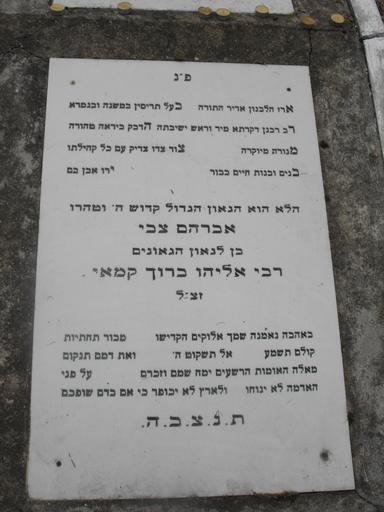 פ״נ
ארז הלבנון אדיר התורה בעל תריסין במשנה ובגמרא
רב רבנן דקרתא מיר וראש ישיבתה הדבק ביראה טהורה
מנורה מיוקרה צוד צדו צדיק עם כל קהילתו
בנים ובנות חיים בבור ידו אבן בם
הלא הוא הגאון הגדול קדוש ה׳ וטהרו
אברהם צבי
בן לגאון הגאונים
רבי אליהו ברוך קמאי
זצ״ל
באהבה נאמנה שמך אלוקים הקדישו מבור תחתיות
קולם תשמע אל תשקוט ה׳ ואת דמם תנקום
מאלה האומות הרשעים ימח שמם וזכרם על פני
האדמה לא ינוחו ולארץ לא יכופר כי אם בדם שופכם
ת.נ.צ.ב.ה.